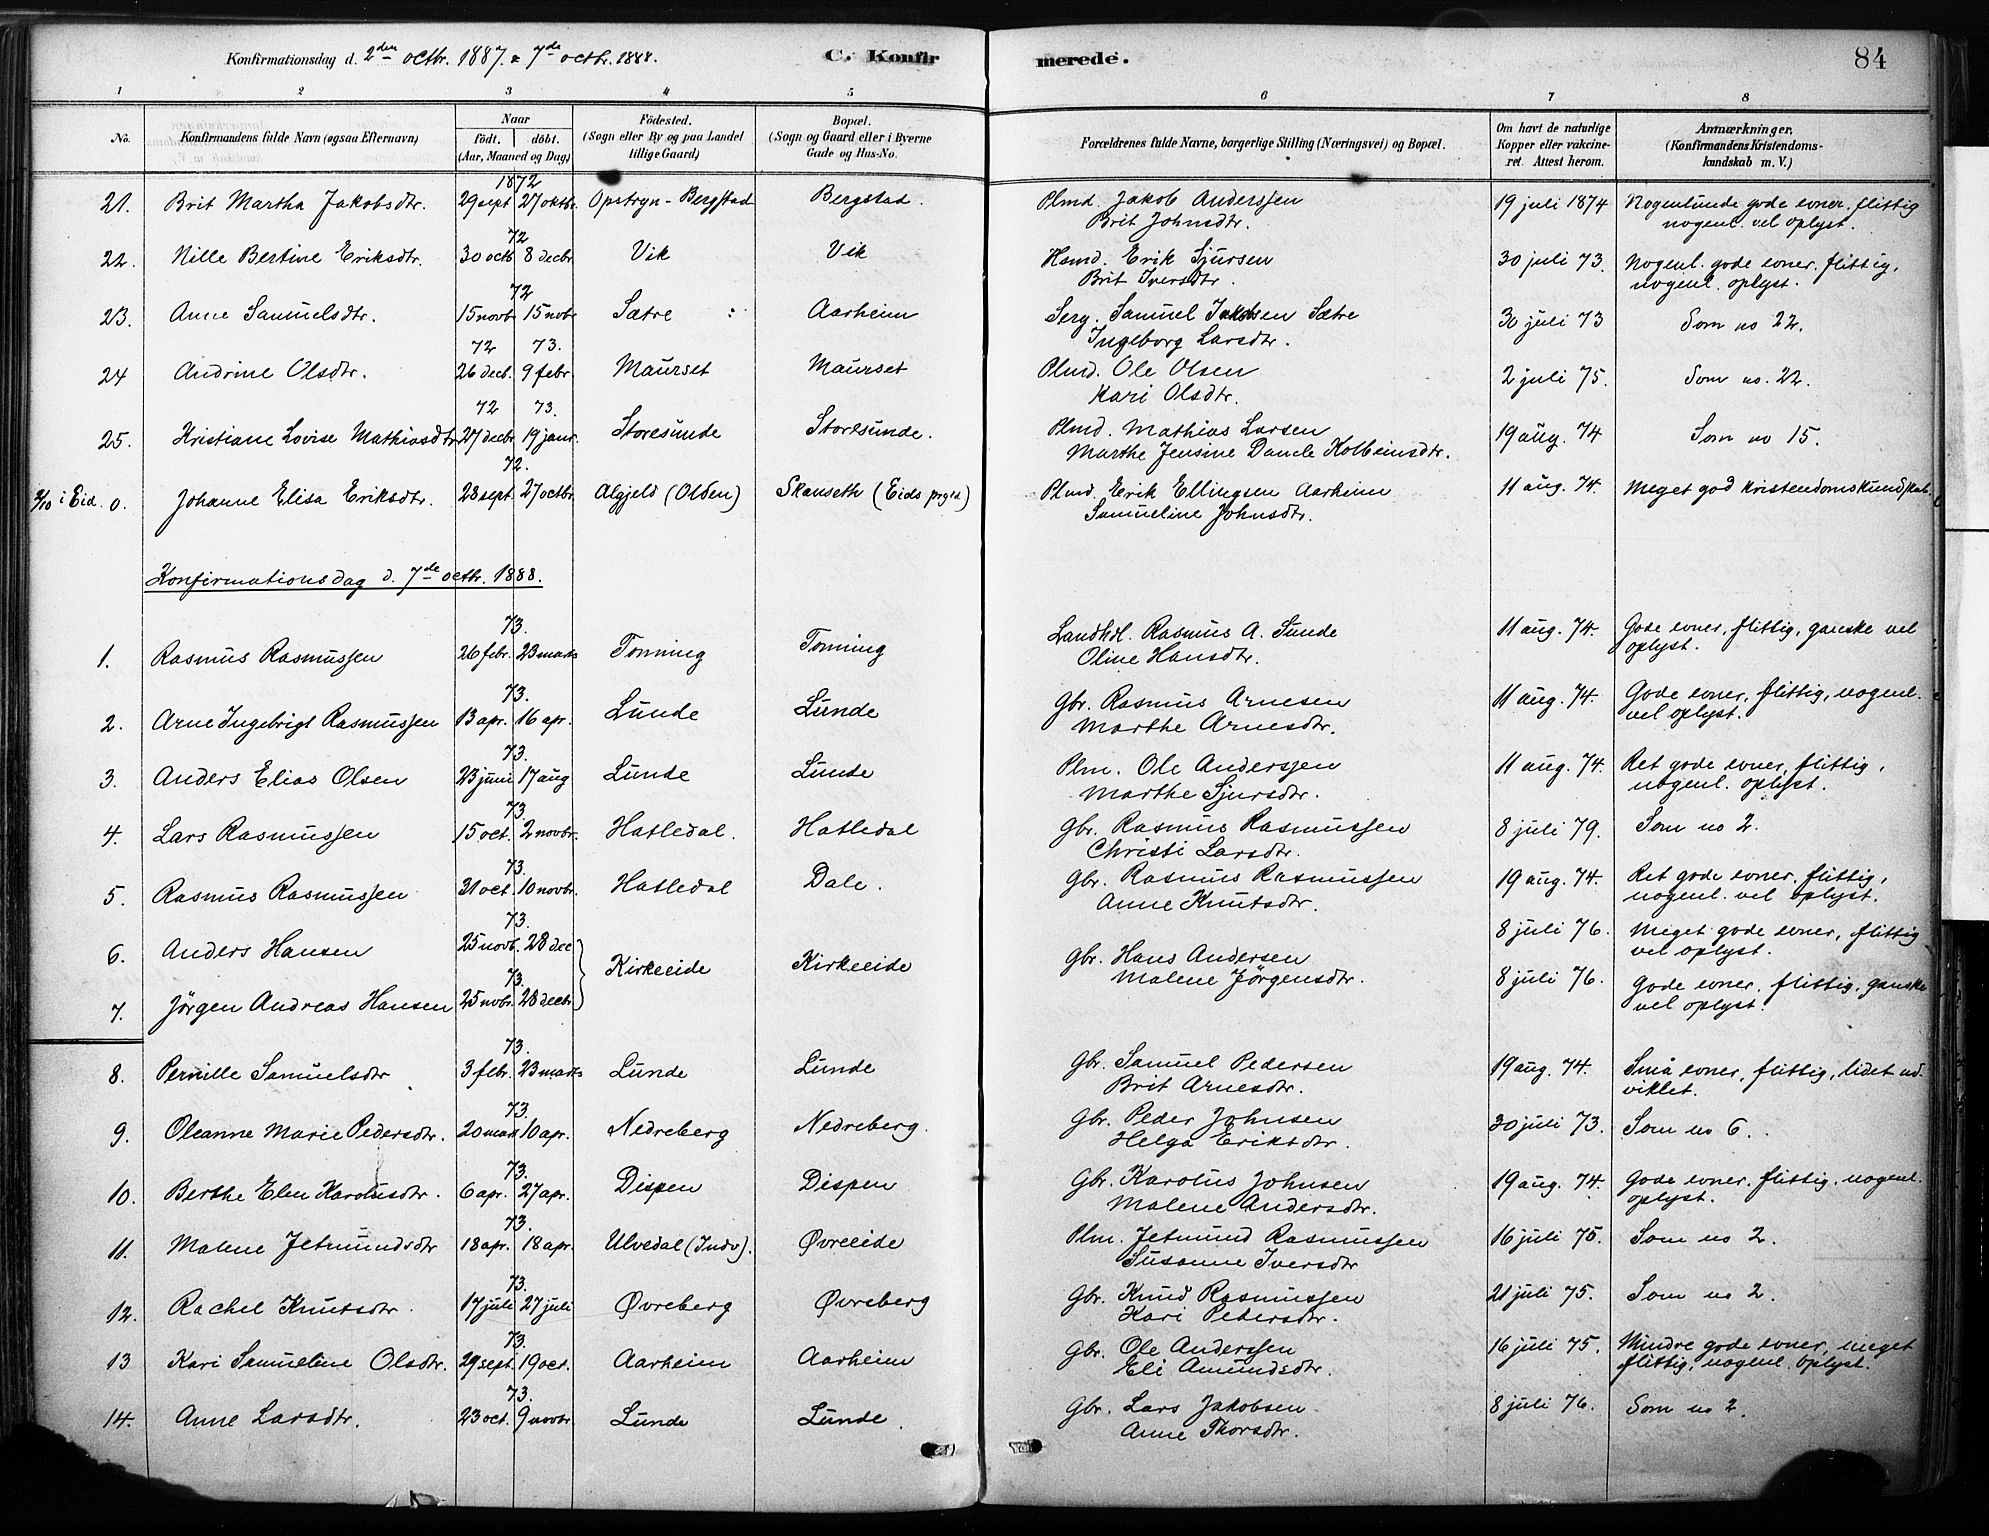 Konfirmationsdag d. 2den octbr. 1887. & 7de octbr. 1888. C. Konfirmerede. 84
1 2 3 4 5 6 7 8
No. Konfirmandens fulde Navn (ogsaa Efternavn) Naar født. døbt. (Aar, Maaned og Dag) Fødested. (Sogn eller By og paa Landet tillige Gaard) Bopæl. (Sogn og Gaard eller i Byerne Gade og Hus-No. Forældrenes fulde Navne, borgerlige Stilling (Næringsvei) og Bopæl. Om havt de naturlige Kopper eller vakcineret. Attest herom. Anmærkninger. (Konfirmandens Kristendomskundskab m. V.)
1872
21. Brit Martha Jakobsdtr. 29 sept 27 oktbr. Opstryn - Bergstad Bergstad. Plmd. Jakob Anderssen 19 juli 1874 Nogenlunde gode evner, flittig
Brit Johnsdtr. nogenl. vel oplyst.
72
22. Nille Bertine Eriksdtr. 30 octb 8 decbr Vik Vik Hsmd. Erik Sjursen 30 juli 73. Nogenl. gode evner. flittig,
Brit Iversdtr. nogenl. oplyst.
72
23. Anne Samuelsdtr. 15 novb 15 novbr Sætre : Aarheim Serg. Samuel Jakobsen Sætre 30 juli 73 Som no 22.
Ingeborg Larsdtr.
72 73.
24 Andrine Olsdtr. 26 decb. 9 febr. Maurset Maurset Plmd. Ole Olsen 2 juli 75. Som no. 22.
Kari Olsdtr.
72 73.
25. Kristiane Lovise Mathiasdtr 27 decbr 19 janr. Storesunde Storesunde. Plmd. Mathias Larsen 19 aug. 74 Som no 15.
Marthe Jensine Dancle Kolbeinsdtr.
72.
2/10 i Eid. 0. Johanne Elisa Eriksdtr. 28 sept. 27 octbr. Algjeld (Olden) Skanseth (Eids prgld) Plmd. Erik Ellingsen Aarheim 11 aug. 74. Meget god kristendomskundskab.
Samueline Johnsdtr.
Konfirmationsdag d. 7de octbr. 1888.
73.
1. Rasmus Rasmussen 26 febr. 23 marts Tonning Tonning Landhdl. Rasmus A. Sunde 11 aug. 74. Gode evner, flittig, ganske vel
Oline Hansdtr. oplyst.
73.
2. Arne Ingebrigt Rasmussen 13 apr. 16 apr. Lunde Lunde Gbr. Rasmus Arnesen 11 aug. 74. Gode evner, flittig, nogenl.
Marthe Arnesdtr. vel oplyst.
73.
3. Anders Elias Olsen 23 juni 17 aug Lunde Lunde Plm. Ole Anderssen 11 aug. 74. Ret gode evner, flittig,
Marthe Sjursdtr. nogenl. oplyst.
73.
4. Lars Rasmussen 15 oct. 2 novbr. Hatledal. Hatledal Gbr. Rasmus Rasmussen 8 juli 79. Som no 2.
Christi Larsdtr.
73.
5. Rasmus Rasmussen 31 oct. 10 novbr. Hatledal Dale. Gbr. Rasmus Rasmussen 19 aug. 74. Ret gode evner. flittig,
Anne Knutsdtr. nogenl. vel oplyst.
73.
6. Anders Hansen 25 novb. 28 dec Kirkeeide Kirkeeide Gbr. Hans Andersen 8 juli 76. Meget gode evner, flittig
Malene Jørgensdtr. vel oplyst.
73.
7. Jørgen Andreas Hansen 25 novbr. 28 decbr 8 juli 76. Gode evner. flittig, ganske
vel oplyst.
73.
8. Pernille Samuelsdtr 3 febr. 23 marts Lunde Lunde Gbr. Samuel Pedersen 19 aug. 74. Små evner, flittig, lidet ud-
Brit Arnesdtr. viklet.
73.
9. Oleanne Marie Pedersdtr. 20 mars 10 apr. Nedreberg Nedreberg. Gbr. Peder Johnsen 30 juli 73. Som no 6.
Helga Eriksdtr.
73.
10. Berthe Elen Karolusdtr. 6 apr. 27 apr. Dispen Dispen Gbr. Karolus Johnsen 19 aug. 74. Gode evner. flittig, nogenl.
Malene Andersdtr. oplyst.
73.
11. Malene Jetmundsdtr 18 apr. 18 apr. Ulvedal (Indv). Øvreeide Plm. Jetmund Rasmussen 16 juli 75. Som no 2.
Susanne Iversdtr
73.
12. Rachel Knutsdtr. 17 juli 27 juli Øvreberg Øvreberg Gbr. Knud Rasmussen 21 juli 75. Som no 2.
Kari Pedersdtr.
73.
13 Kari Samueline Olsdtr. 29 sept. 19 oct. Aarheim Aarheim Gbr. Ole Anderssen 16 juli 75. Mindre gode evner, meget
Eli Amundsdtr flittig, nogenl. oplyst.
73.
14. Anne Larsdtr. 23 oct. 9 novbr. Lunde Lunde. Gbr. Lars Jakobsen 8 juli 76. Som no 2.
Anne Thorsdtr.